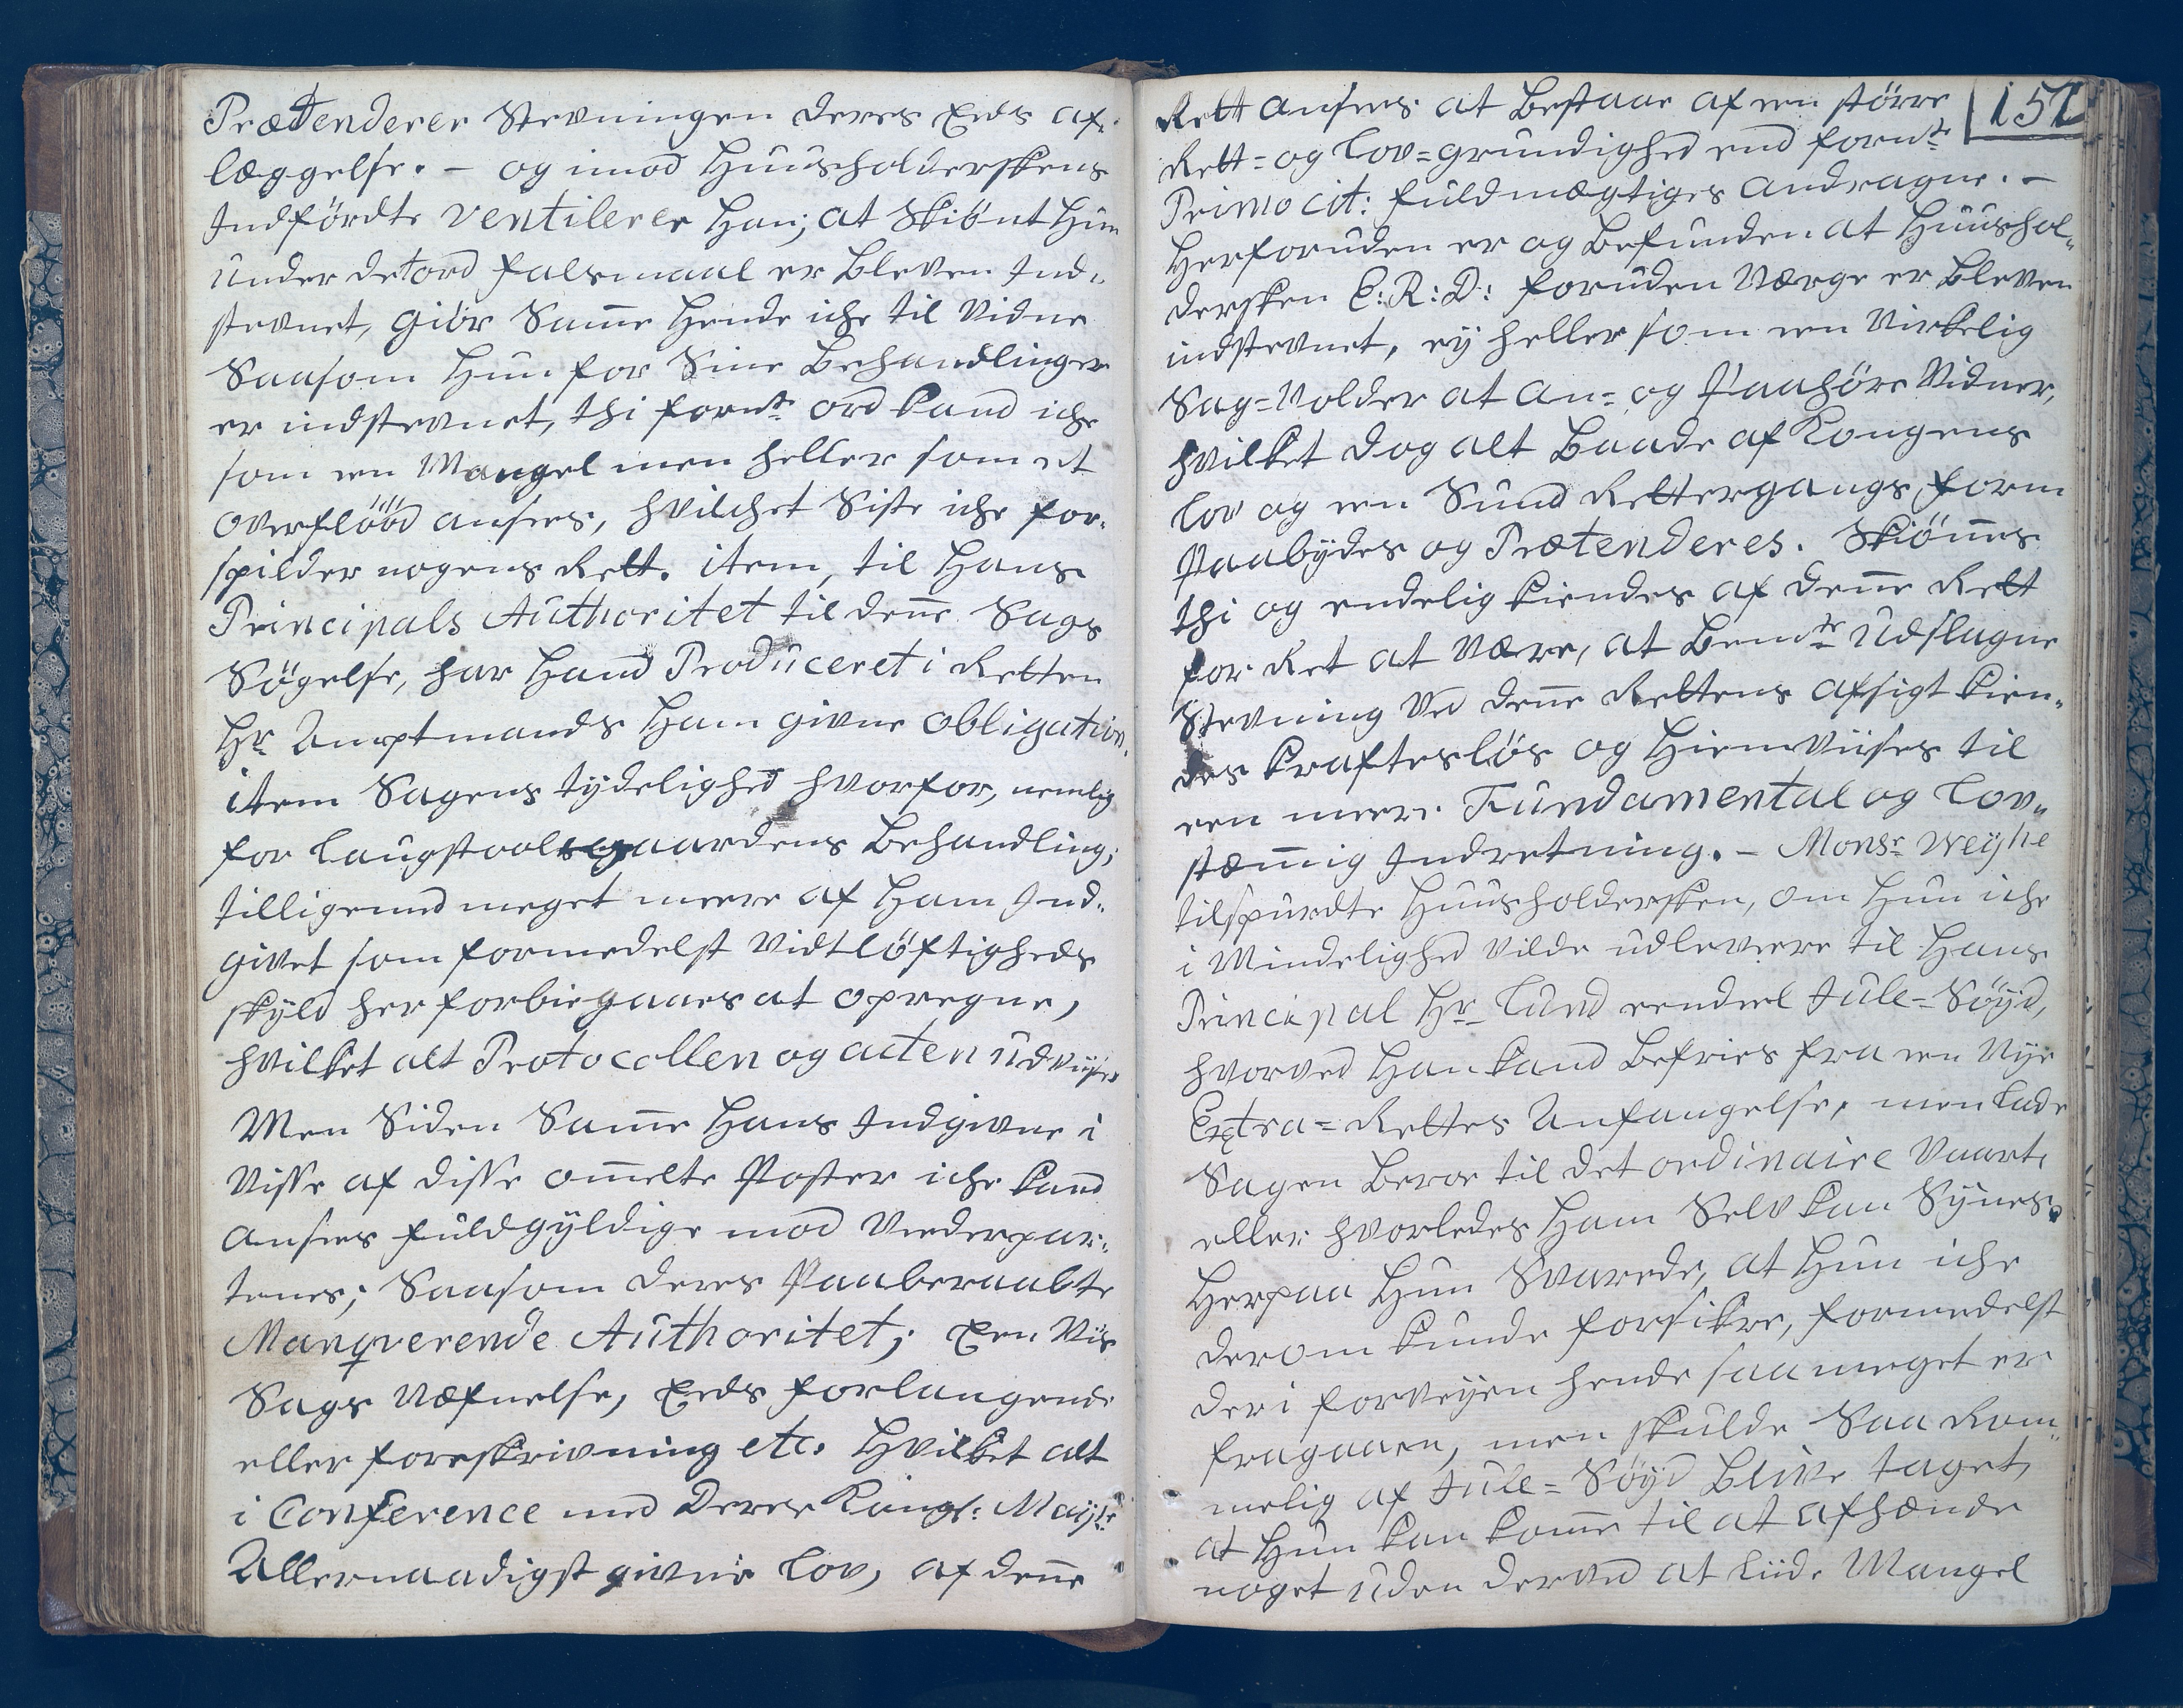 Prætenderer Stevningen deres Eeds af-
læggelse. – og imod Huusholderskens
Indførdte ventilerer Han; at Skiønt Hun
under det ord falsmaal er bleven Ind-
stevnet, giör Samme Hende iche til Vidne
Saasom Hun for Sine Behandlinger
er indstevnet, thi fornte ord kand iche
som een Mangel men heller som et
overflööd ansees, hvilchet Siste iche for-
spilder nogens Rett. item, til Hans
Principals Authoritet til denne Sags
Søgelse, har Hand Produceret i Retten
Hr Amptmands Ham givne obligation.
item Sagens tydelighed hvorfor, nemlig
for Laugstoolsgaardens Behandling;
tilligemed meget meere af Ham Ind-
givet som formedelst Vidtløftigheds
skyld her forbiegaaes at opregne,
hvilket alt Protocollen og acten udviiser
Men Siden Samme Hans Indgivne i
Visse af disse ommelte Poster iche kand
ansees fuldgyldige mod Vederpar-
tenes; Saasom deres Paaberaabte
Manqverende Authoritet; Een Vis
Sags Nefnelse, Eeds forlangende
eller foreskrivning etc. Hvilket alt
i Conference med Deres Kongl: Mayts
Allernaadigst givne Lov, af denne
157
Rett ansees at Bestaae af een större
Rett= og Lov=grundighed end fornte
Primo cit: fuldmægtiges andragne. –
Herforuden er og Befunden at Huushol-
dersken C: R: D: foruden Værge er bleven
indstevnet, ey heller som een Virkelig
Sag=Volder at an= og Paahöre Vidner,
hvilket dog alt Baade af Kongens
Lov og een Sund Rettergangs form
Paabydes og Prætenderes. Skiönnes
thi og endelig kiendes af denne Rett
for Ret at Være, at Bemte udslagne
Stevning ved denne Rettens afsigt kien-
des kraftesløs og Hiemviises til
een meere Fundamental og Lov-
stæmmig Indretning. – Monsr Weyhe
tilspurdte Huusholdersken, om Hun iche
i Mindelighed vilde udlevere til Hans
Principal Hr Lund eendeel Jule=Søyd,
hvorved Han kand Befries fra een Nye
Extra=Rettes Anfangelse, men lade
Sagen beroe til det ordinaire Vaart,
eller hvorledes Ham Selv kan Synes.
Herpaa Hun Svarede, at Hun iche
derom kunde forsikre, formedelst
der i forveyen hende saa meget er
fragaaen, men skulde Saa Rom-
melig af Jule=Søyd Blive taget,
at Hun kan komme til at afhænde
noget uden derved at liide Mangel